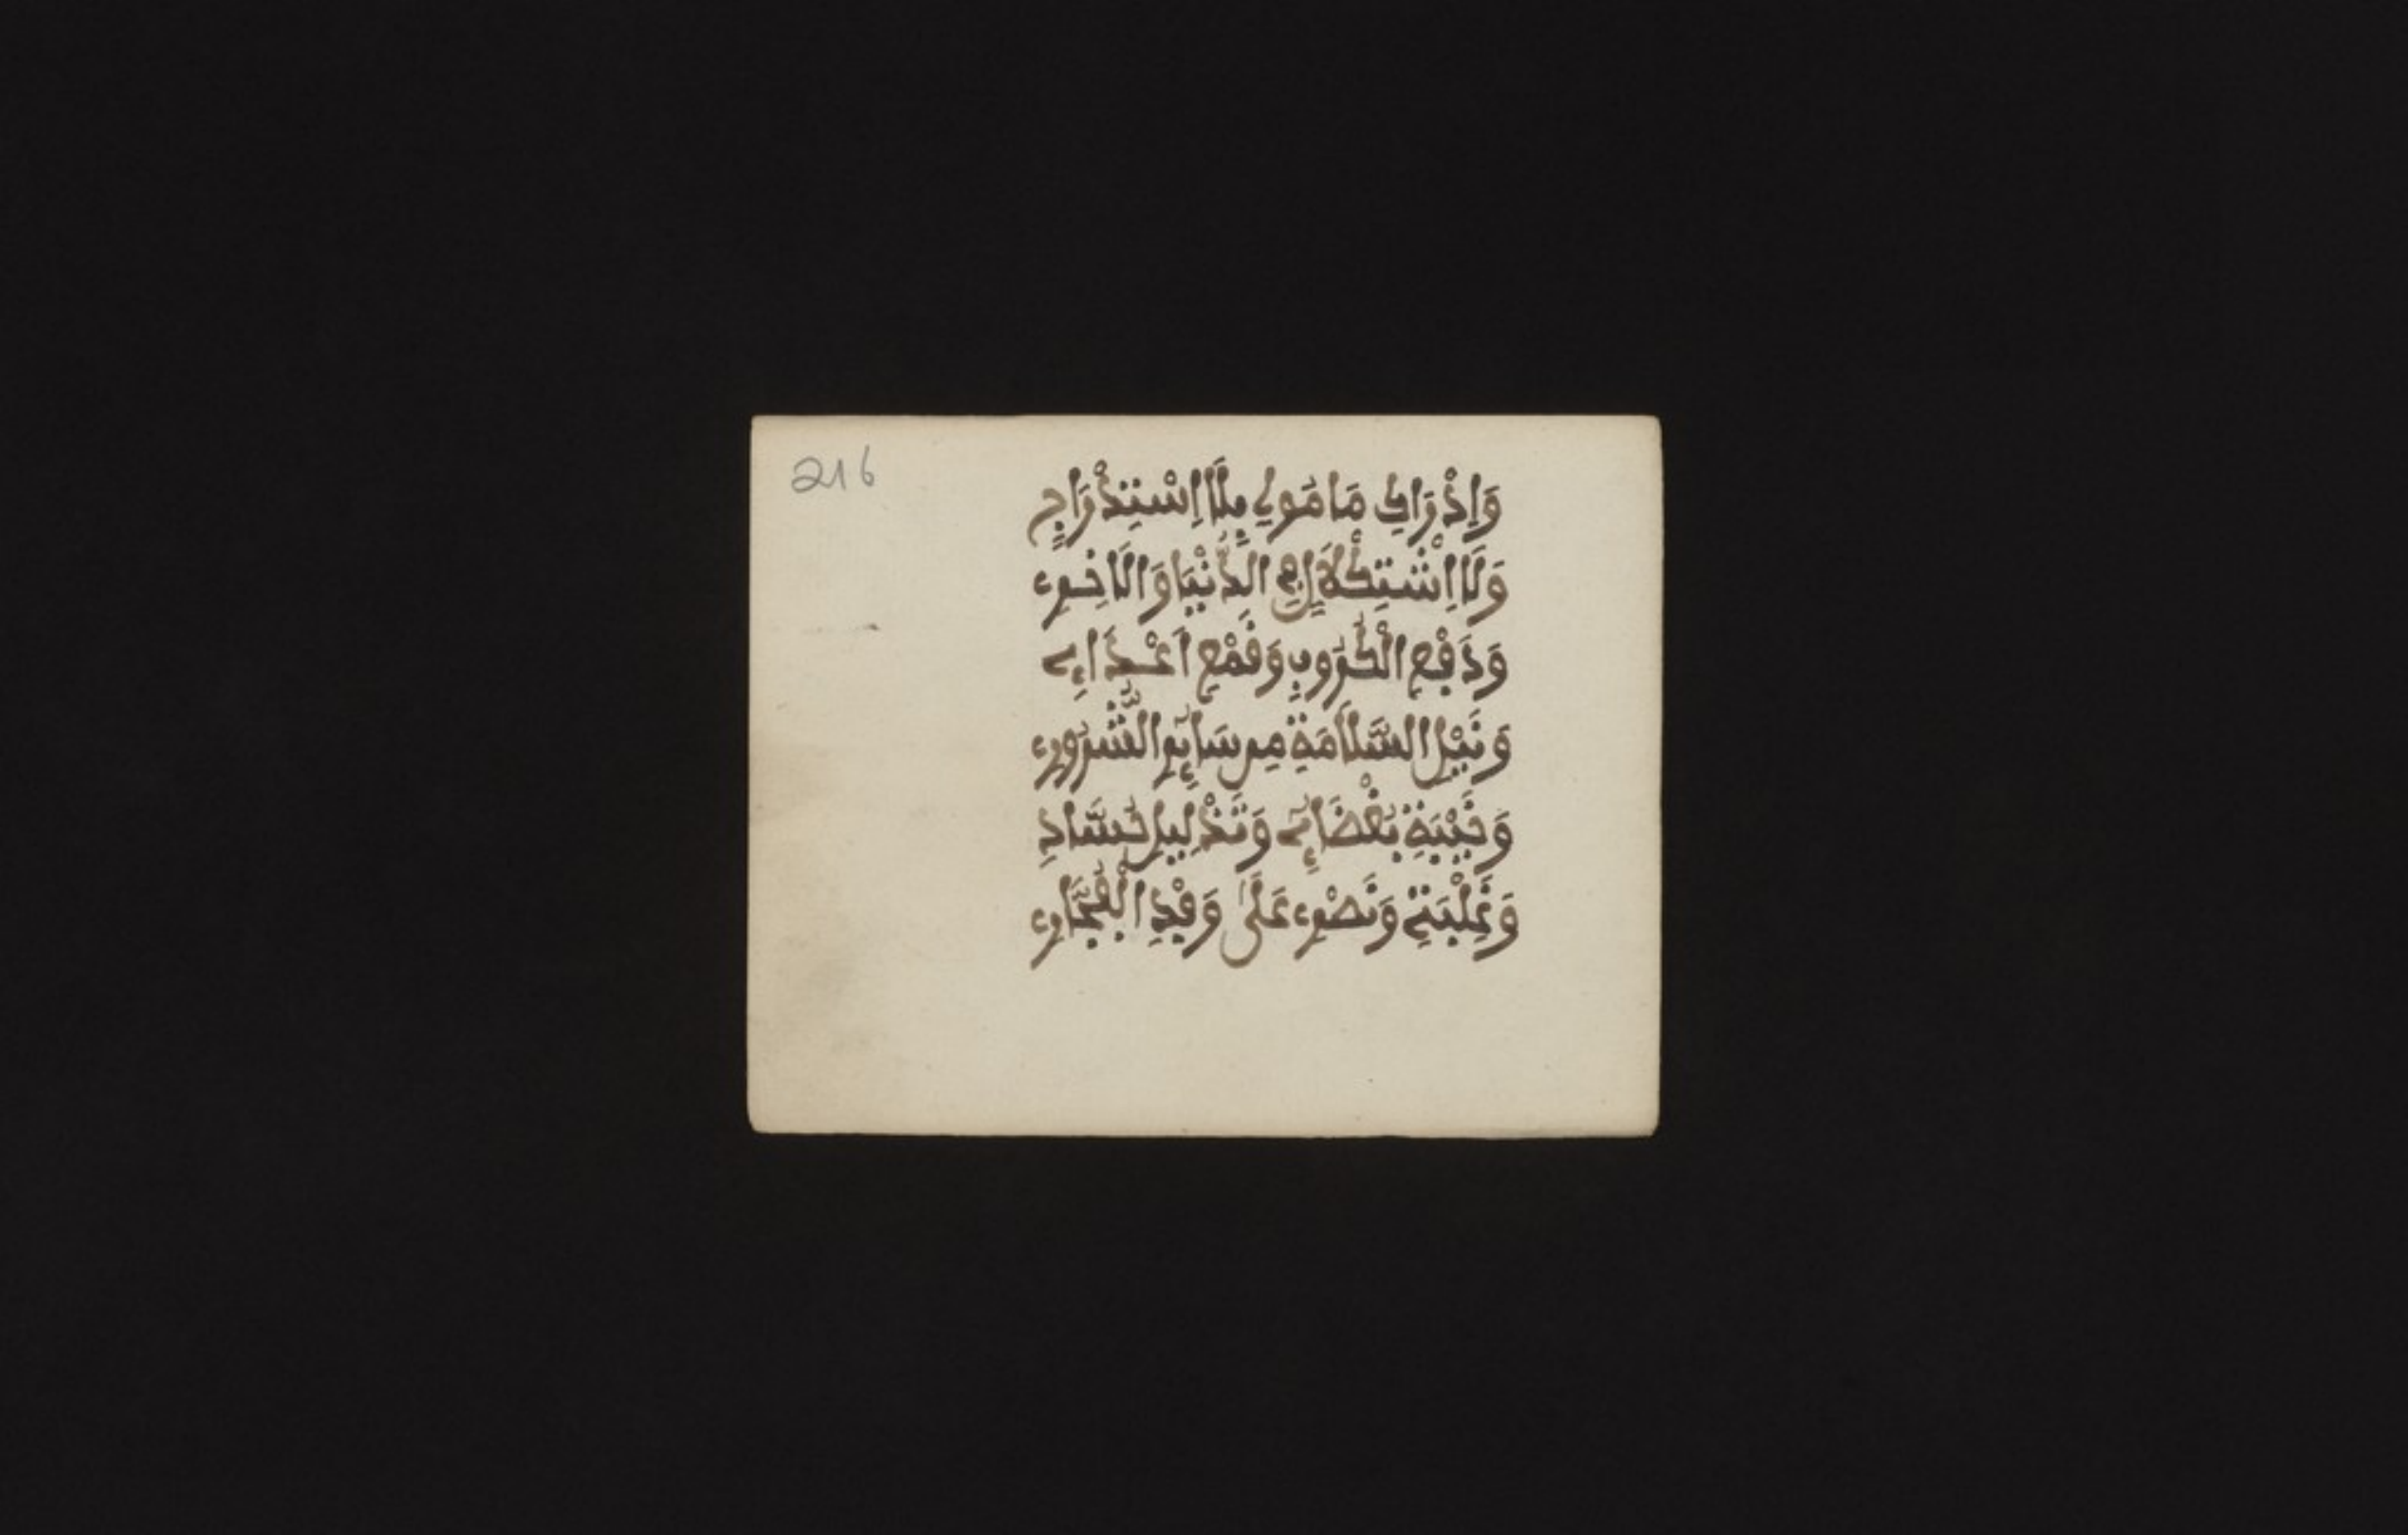 216
وَإِدْرَاكِ مَا مُولِي بِلَا اِسْتِدْرَاجٍ
وَلَا اِسْتِكْلَالٍ فِي الدُّنْيَا وَالَاخِرِ
وَدَفْعِ الْكُرُوبِ وَقَمْعِ اَعْدَاءِ
وَنَيْلِ السَّلَامَةِ مِن سَائِرِ الشُّرُورِ
وَخَيْبَةِ بُغْضَائِ وَتَذْلِيلِ حُسَّادِ
وَغَلْبَتِ وَنَصْرِ عَلَى وَفْدِ الْفُجَّارِ